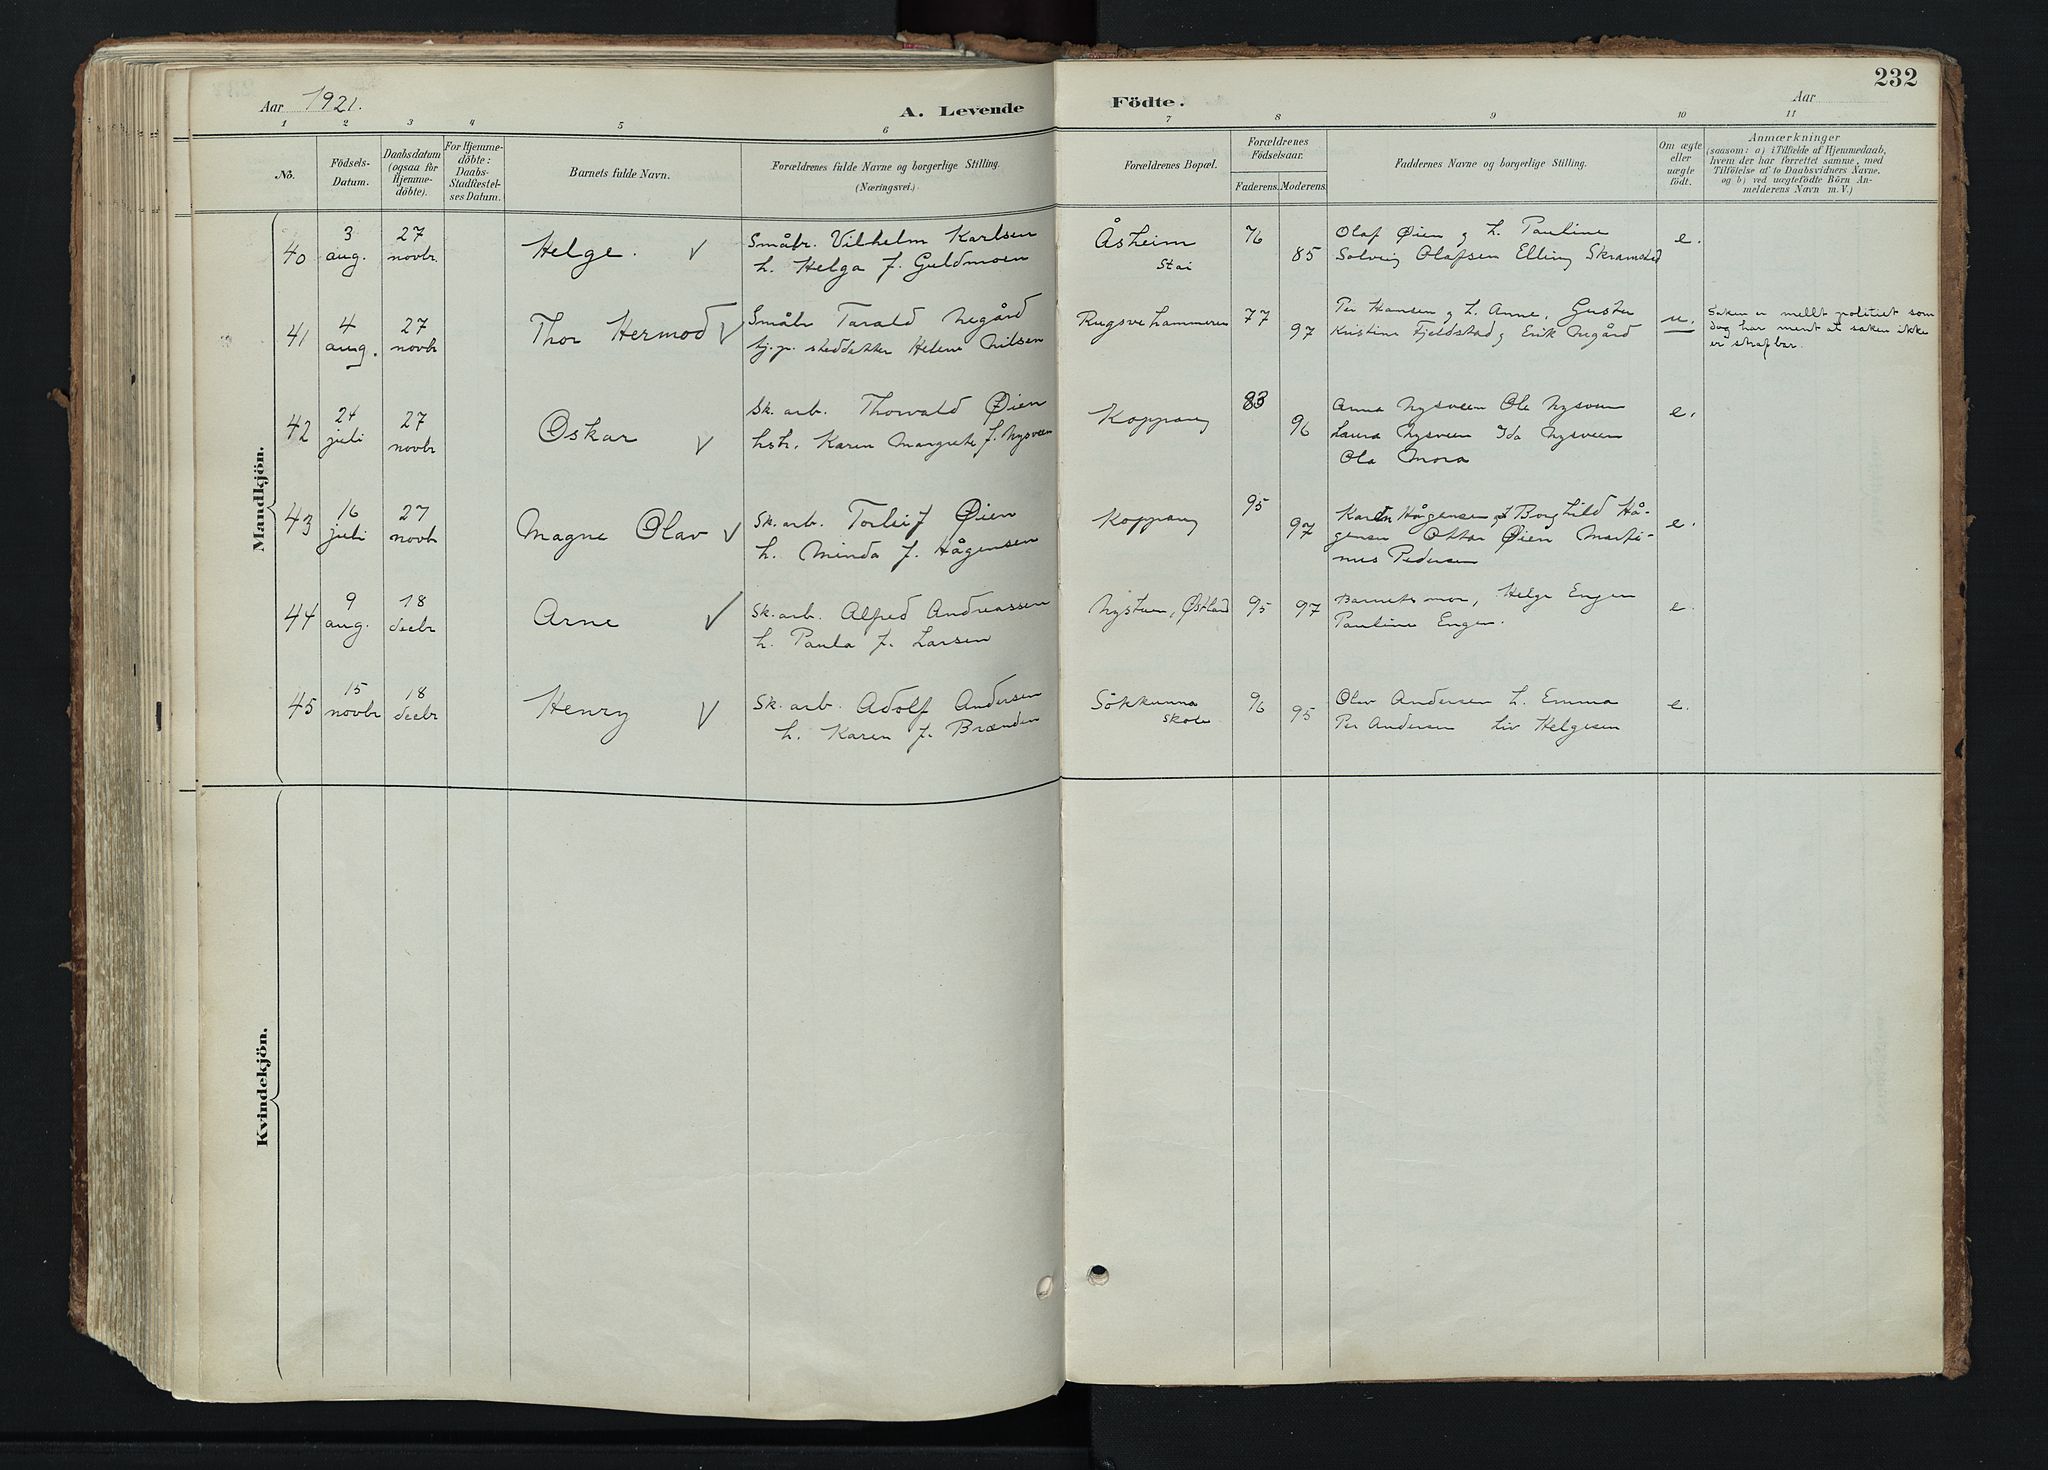 232
Aar 1921.
A. Levende Födte.
Aar
1 2 3 4 5 6 7 8 9 10 11
No.
Födsels-
Datum.
Daabsdatum
(ogsaa for
Hjemme-
döbte).
For Hjemme-
döbte:
Daabs-
Stadfæstel-
ses Datum.
Barnets fulde Navn.
Forældrenes fulde Navne og borgerlige Stilling.
(Næringsvei.)
Forældrenes Bopæl.
Forældrenes
Födselsaar.
Faderens. Moderens.
Faddernes Navne og borgerlige Stilling.
Om ægte
eller
uægte
födt.
Anmærkninger
(saasom: a) i Tilfælde af Hjemmedaab,
hvem der har forrettet samme, med
Tilföielse af to Daabsvidners Navne,
og b) ved uægtefödte Börn An-
melderens Navn m. V.)
Mandkjön.
40
3
aug.
27
novbr
Helge.
Småbr. Vilhelm Karlsen
h. Helga f. Guldmoen
Åsheim
Stai
76
85
Olaf Øien og h. Pauline
Solveig Olafsen Elling Skramstad
e.
41
4
aug.
27
novbr
Thor Hermod
Småbr Tarald Negård
tj.p. steddatter Helene Nilsen
Rugsvehammeren
77
97
Per Hansen og h. Anne, Gusta
Kristine Fjeldstad og Erik Negård
u.
Saken er meldt politiet som
dog har ment at saken ikke
er strafbar.
42
24
juli
27
novbr
Oskar
Sk. arb. Thorvald Øien
hsh. Karen Margrete f. Nysveen
Koppang
83
96
Anna Nysveen Ole Nysveen
Laura Nysveen Ida Nysveen
Ola Mora
e.
43
16
juli
27
novbr
Magne Olav
Sk. arb. Torleif Øien
h. Minda f. Hågensen
Koppang
95
97
Karen Hågensen Borghild Hå-
gensen Ottar Øien Marti-
nus Pedersen
e.
44
9
aug.
18
decbr
Arne
Sk. arb. Alfred Andreassen
h. Paula f. Larsen
Nystuen, Østlad
95
97
Barnets mor, Helge Engen
Pauline Engen.
e.
45
15
novbr
18
decbr
Henry
Sk. arb. Adolf Andersen
h. Karen f. Brænden
Søkkunna
skole
96
95
Olav Andersen h. Emma
Per Andersen Liv Helgesen
e.
Kvindekjön.